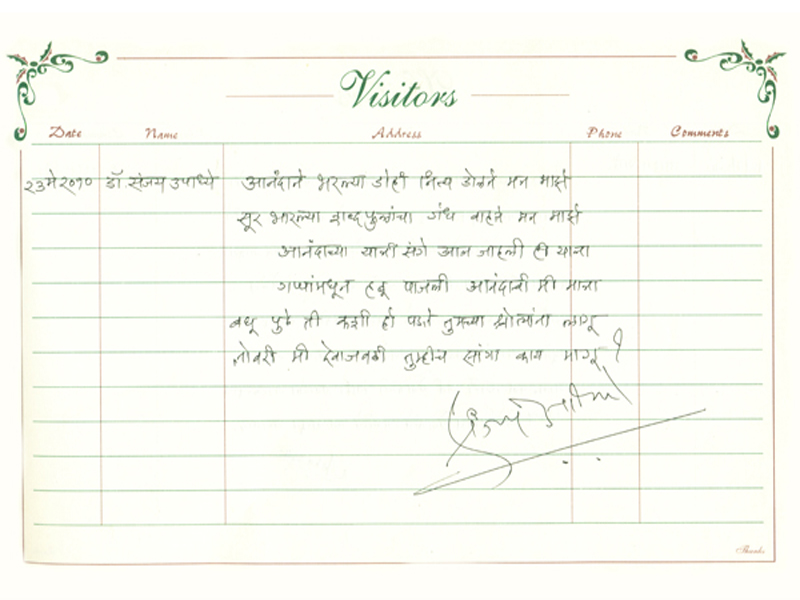 Visitors
Date Name Address Phone Comments
२३ मे २०१० डॉ. संजय उपाध्ये आनंदाने भरल्या डोही नित्य डोलते मन माझे
सूर भारल्या शब्दफुलांचा गंध वाहते मन माझे
आनंदाच्या यात्री संगे आज जाहली ही यात्रा
गप्पांमधून हळू पाजली आनंदाची मी मात्रा
बघू पुढे ती कशी हो पडते तुमच्या श्रोत्यांना लागू
तोवरी मी देवाजवळी तुम्हीच सांगा काय मागू ?
Thanks